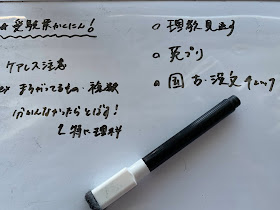 ☆受験票かくにん！
ケアレス注意
⇒ まちがってるもの・複数
分かんなかったらとばす！
↳ 特に理科
○ 理数見直す
○ プリ
○ 国 古・漢文チェック